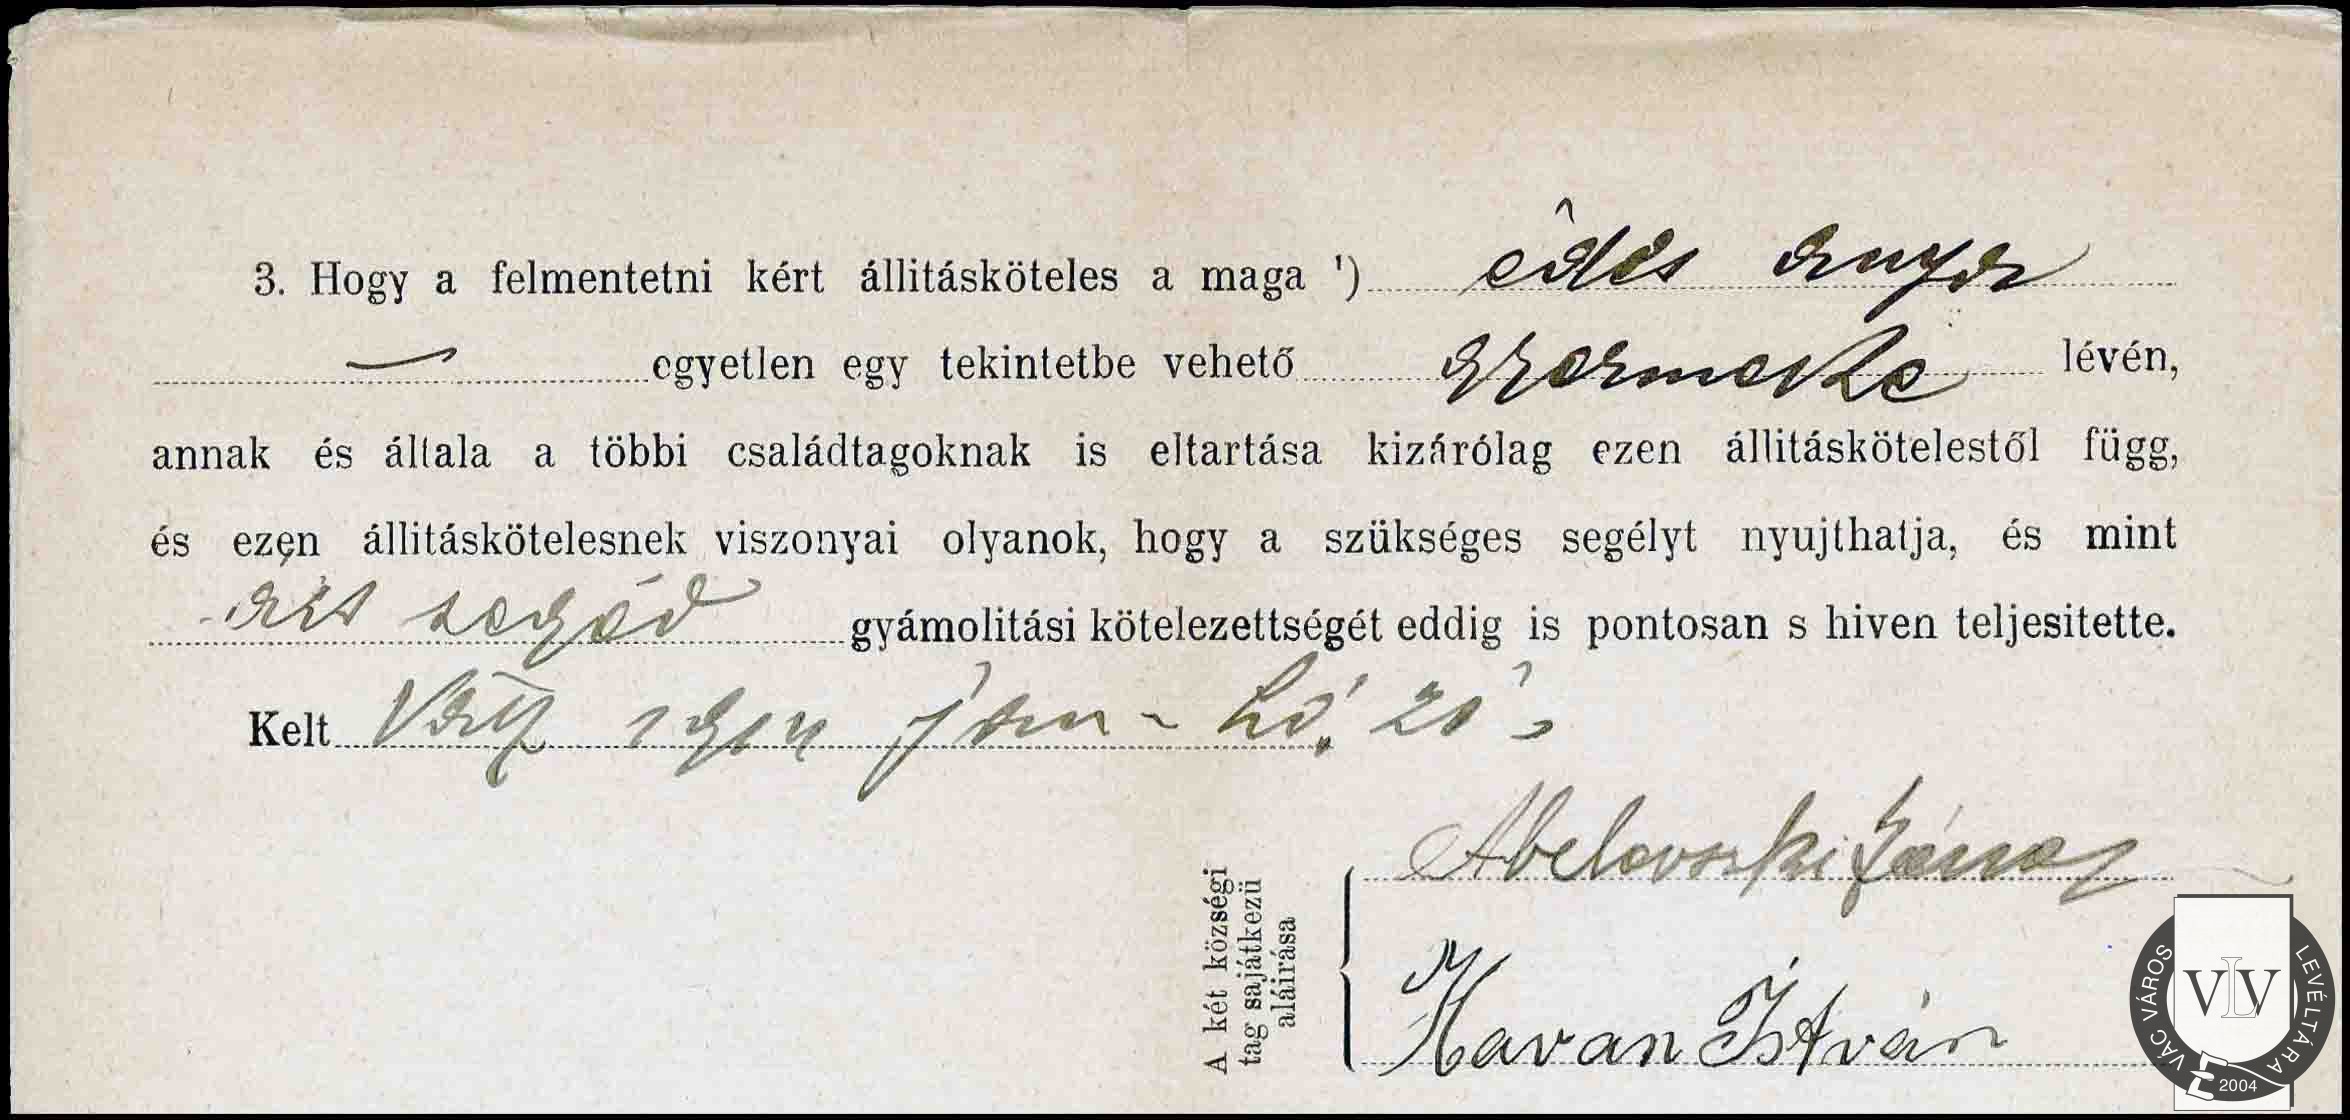 3. Hogy a felmentetni kért állitásköteles a maga ¹) édes anya
— egyetlen egy tekintetbe vehető gyermeke lévén,
annak és általa a többi családtagoknak is eltartása kizárólag ezen állitáskötelestől függ,
és ezen állitáskötelesnek viszonyai olyanok, hogy a szükséges segélyt nyujthatja, és mint
segéd gyámolitási kötelezettségét eddig is pontosan s hiven teljesitette.
Kelt Vátz jan - hó 20
A két községi
tag sajátkezü
aláirása
Abelovszki János
Havan István
VÁC VÁROS LEVÉLTÁRA
VLV
2004